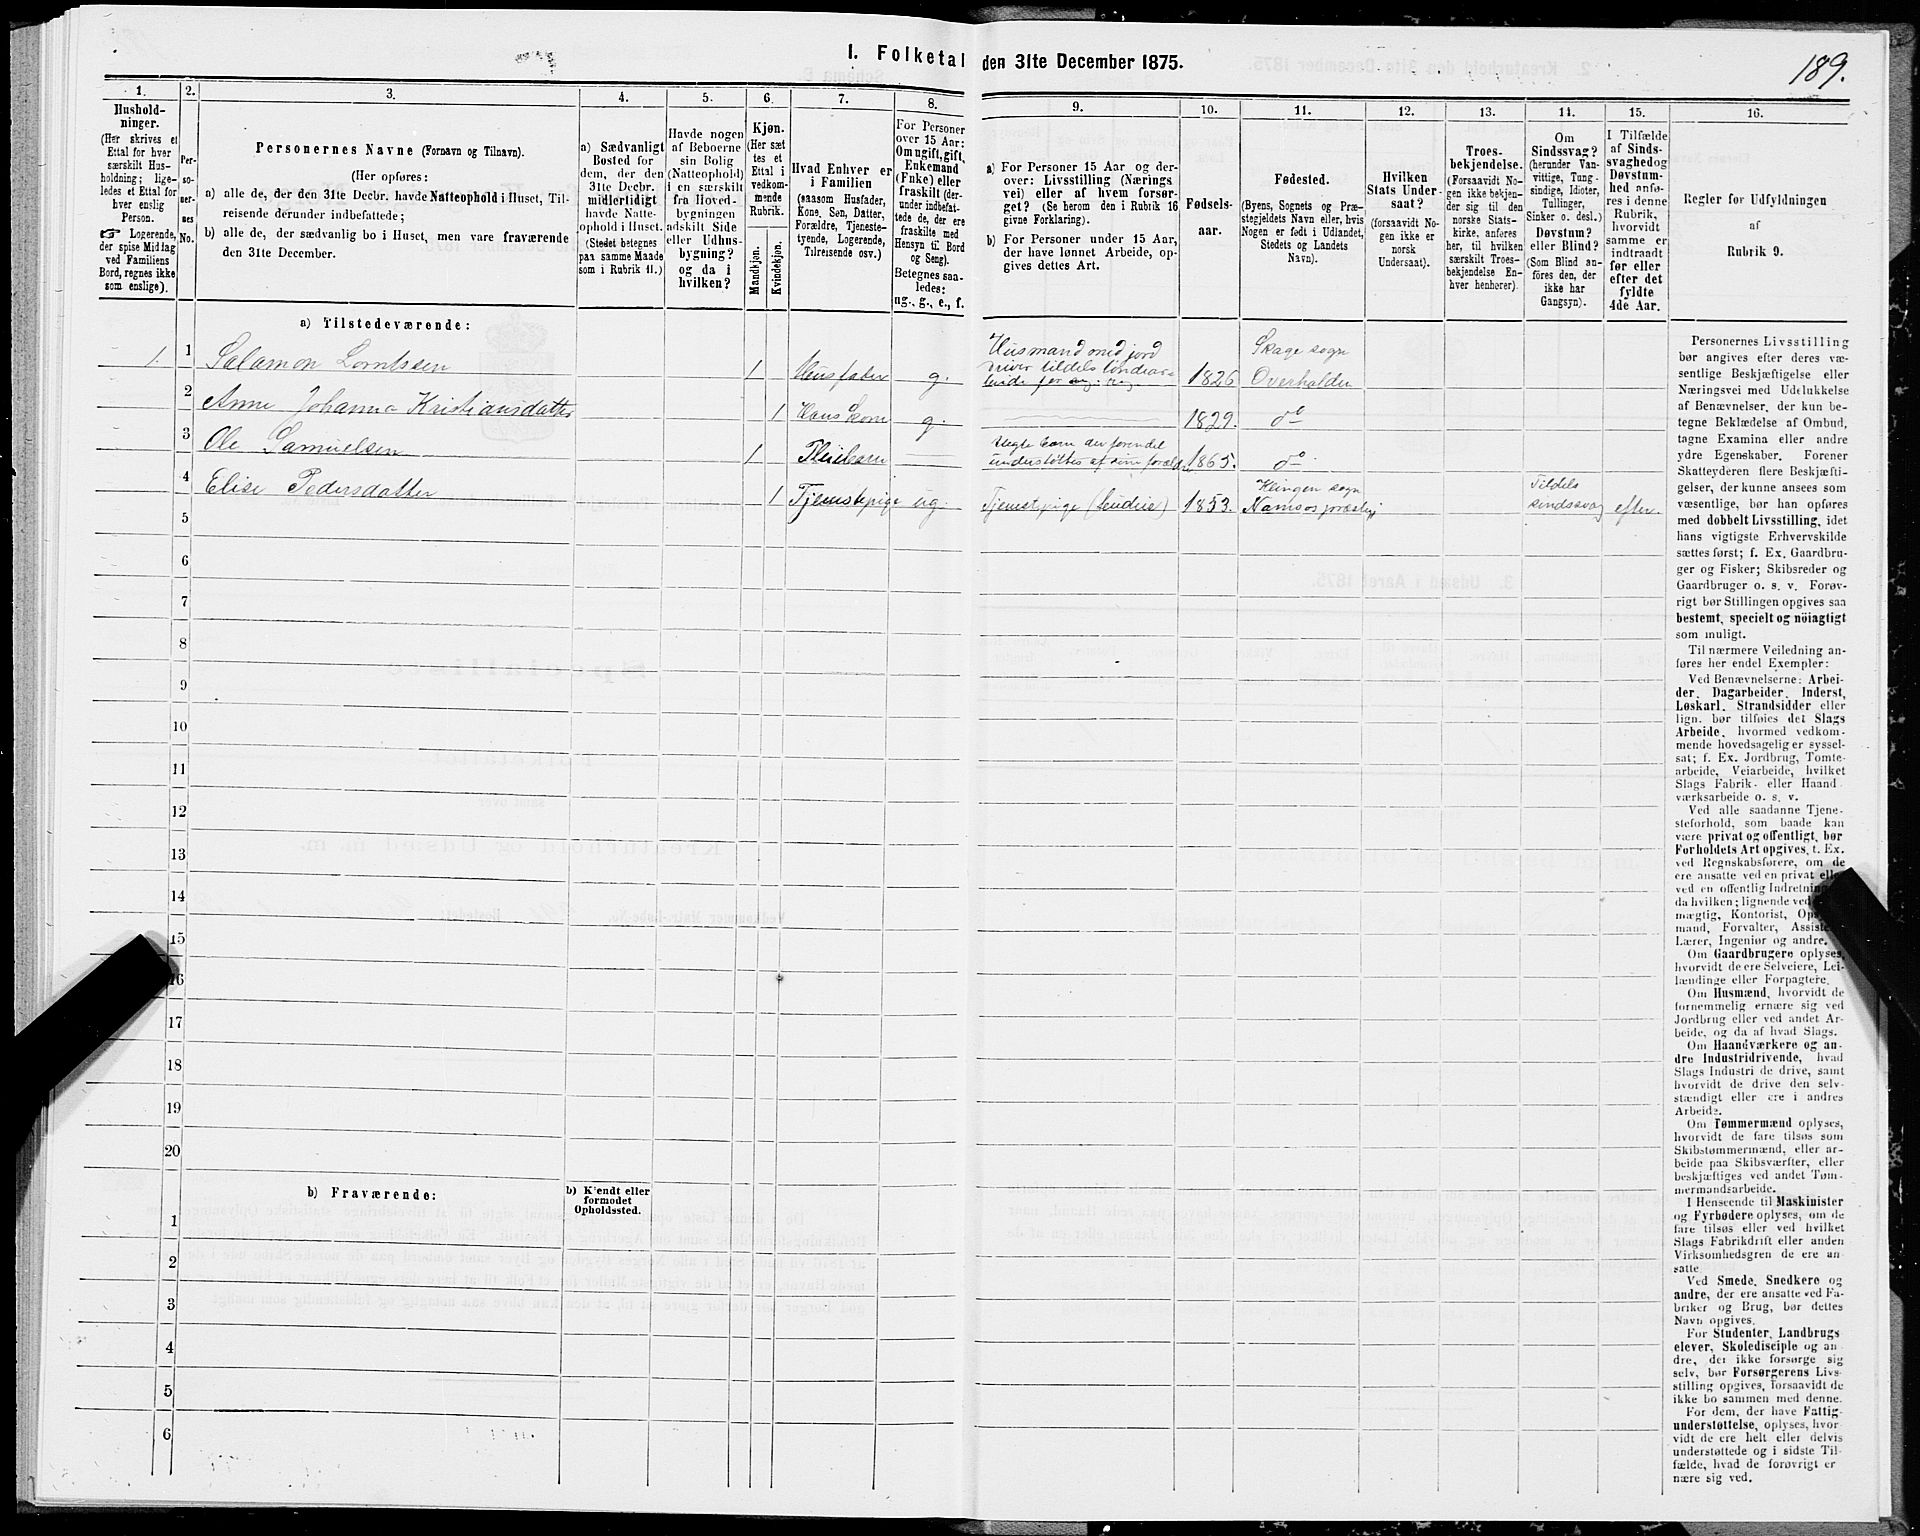 189.
I. Folketal den 31te December 1875.
1. 2. 3. 4. 5. 6. 7. 8. 9. 10. 11. 12. 13. 14. 15. 16.
Hushold-
ninger.
(Her skrives et
Ettal for hver
særskilt Hus-
holdning; lige-
ledes et Ettal for
hver enslig
Person.
☞ Logerende,
der spise Middag
ved Familiens
Bord, regnes ikke
som enslige).
Per-
so-
ner-
nes
No.
Personernes Navne (Fornavn og Tilnavn).
(Her opføres:
a) alle de, der den 31te Decbr. havde Natteophold i Huset, Til-
reisende derunder indbefattede;
b) alle de, der sædvanlig bo i Huset, men vare fraværende
den 31te December.
a) Sædvanligt
Bosted for
dem, der den
31te Decbr.
midlertidigt
havde Natte-
ophold i Huset.
(Stedet betegnes
paa samme Maade
som i Rubrik 11.)
Havde nogen
af Beboerne
sin Bolig
(Natteophold)
i en særskilt
fra Hoved-
bygningen
adskilt Side
eller Udhus-
bygning?
og da i
hvilken?
Kjøn.
(Her sæt
tes et
Ettal i
vedkom-
mende
Rubrik.
Mandkjøn.
Kvindekjøn.
Hvad Enhver er
i Familien
(saasom Husfader,
Kone, Søn, Datter,
Forældre, Tjeneste-
tyende, Logerende,
Tilreisende osv.)
For Personer
over 15 Aar:
Om ugift, gift,
Enkemand
(Enke) eller
fraskilt (der-
under indbefat-
tede de, der ere
fraskilte med
Hensyn til Bord
og Seng).
Betegnes saa-
ledes:
ug., g., e., f.
a) For Personer 15 Aar og der-
over: Livsstilling (Nærings
vei) eller af hvem forsør-
get? (Se herom den i Rubrik 16
givne Forklaring).
b) For Personer under 15 Aar,
der have lønnet Arbeide, op-
gives dettes Art.
Fødsels-
aar.
Fødested.
(Byens, Sognets og Præ-
stegjeldets Navn eller, hvis
Nogen er født i Udlandet,
Stedets og Landets
Navn).
Hvilken
Stats Under-
saat?
(forsaavidt No-
gen ikke er
norsk
Undersaat).
Troes-
bekjendelse.
(Forsaavidt No-
gen ikke bekjen-
der sig til den
norske Stats-
kirke, anføres
her, til hvilken
særskilt Troes-
bekjendelse En-
hver henhører).
Om
Sindssvag?
(herunder Van-
vittige, Tung-
sindige, Idioter,
Tullinger,
Sinker o. desl.)
Døvstum?
eller Blind?
(Som Blind an-
føres den, der
ikke har
Gangsyn).
I Tilfælde
af Sinds-
svaghed og
Døvstum-
hed anfø-
res i denne
Rubrik,
hvorvidt
samme er
indtraadt
før eller
efter det
fyldte
4de Aar.
Regler for Udfyldningen
af
Rubrik 9.
a) Tilstedeværende:
1. 1 Salamon Lorntssen 1 Husfader g. Husmand med jord 1826 Skage sogn Overhalden
2 Anne Johanna Kristiansdatter 1 Hans Kone g. 1829. do
3 Ole Samuelsen 1 Pleiebarn understøttes af sine foræld 1865. do
4 Elise Pedersdatter 1 Tjenstepige ug. Tjenstepige 1853. Klingen sogn Namsos præstegj Tildels sindssvag efter.
5
6
7
8
9
10
11
12
13
14
15
16
17
18
19
20
b) Fraværende:
b) Kjendt eller
formodet
Opholdssted.
1
2
3
4
5
6
Personernes Livsstilling
bør angives efter deres væ-
sentlige Beskjæftigelse eller
Næringsvei med Udelukkelse
af Benævnelser, der kun be-
tegne Beklædelse af Ombud,
tagne Examina eller andre
ydre Egenskaber. Forener
Skatteyderen flere Beskjæfti-
gelser, der kunne ansees som
væsentlige, bør han opføres
med dobbelt Livsstilling, idet
hans vigtigste Erhvervskilde
sættes først; f. Ex. Gaardbru-
ger og Fisker; Skibsreder og
Gaardbruger o. s. v. Forøv-
rigt bør Stillingen opgives saa
bestemt, specielt og nöiagtigt
som muligt.
Til nærmere Veiledning an-
føres her endel Exempler:
Ved Benævnelserne: Arbei-
der, Dagarbeider, Inderst,
Løskarl, Strandsidder eller
lign. bør tilføies det Slags
Arbeide, hvormed vedkom-
mende hovedsagelig er syssel-
sat; f. Ex. Jordbrug, Tomte-
arbeide, Veiarbeide, hvilket
Slags Fabrik- eller Haand
værksarbeide o. s. v.
Ved alle saadanne Tjene-
steforhold, som baade kan
være privat og offentligt, bør
Forholdets Art opgives, t. Ex.
ved Regnskabsførere, om de
ere ansatte ved en privat eller
ved en offentlig Indretning
da hvilken; lignende ved
mægtig, Kontorist, Op
mand, Forvalter, Assiste
Lærer, Ingeniør og andre.
Om Gaardbrugere oplyses,
hvorvidt de ere Selveiere, Lei-
lændinge eller Forpagtere.
Om Husmænd, hvorvidt de
fornemmelig ernære sig ved
Jordbrug eller ved andet Ar-
beide, og da af hvad Slags.
Om Haandværkere og an-
dre Industridrivende, hvad
Slags Industri de drive, samt
hvorvidt de drive den selv-
stændigt eller ere i andres
Arbeide.
Om Tømmermænd oplyses,
hvorvidt de fare tilsøs som
Skibstømmermænd, eller ar-
beide paa Skibsværfter, eller
beskjæftiges ved andet Tøm-
mermandsarbeide.
I Henseende til Maskinister
og Fyrbødere oplyses, om de
fare tilsøs eller ved hvilket
Slags Fabrikdrift eller anden
Virksomhedsgren de ere an-
satte.
Ved Smede, Snedkere og
andre, der ere ansatte ved Fa-
briker og Brug, bør dettes
Navn opgives.
For Studenter, Landbrugs
elever, Skoledisciple og an
dre, der ikke forsørge sig
selv, bør Forsørgerens Livs-
stilling opgives, forsaavidt de
ikke bo sammen med denne.
For dem, der have Fattig-
understøttelse, oplyses, hvor-
vidt de ere helt eller delvis
understøttede og i sidste Til-
fælde, hvad de forøvrigt er
nære sig ved.